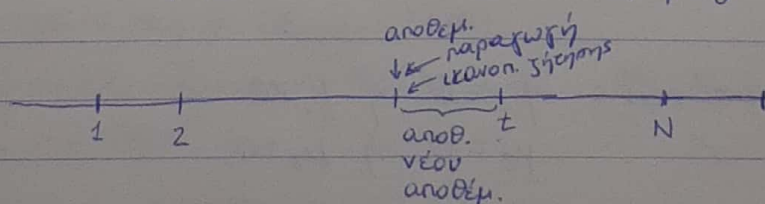 αποθεμ.
παραγωγή
ικανοπ. ζήτησης
1 2 t N
αποθ.
νέου
αποθέμ.